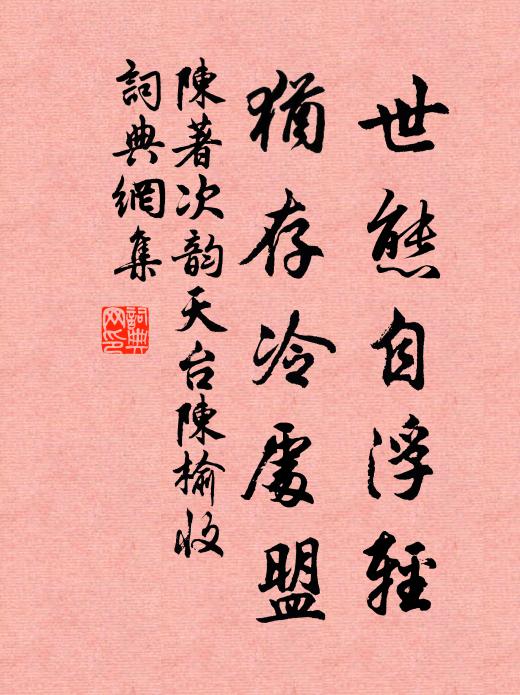 世態自浮輕
猶存冷處盟
陳著次韵天台陳榆收
詞典網集
詞典网印